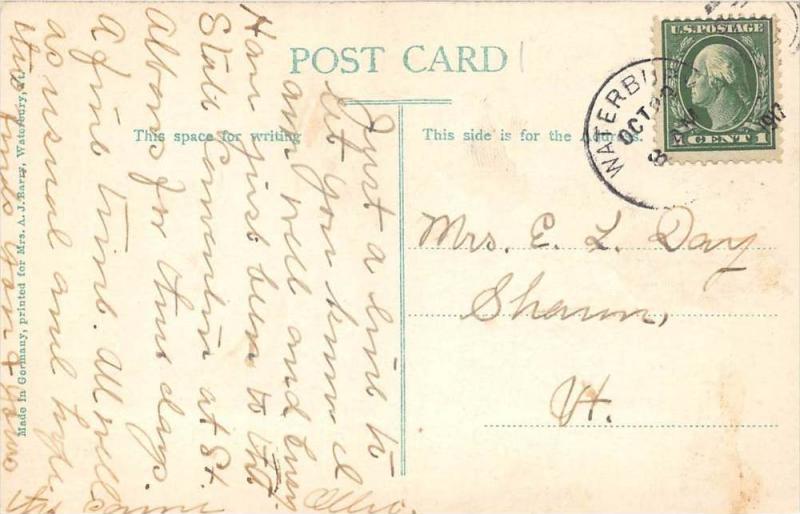 POST CARD
This space for writing
This side is for the Address.
U.S. POSTAGE
1 CENT 1
WATERBU
OCT
8
1917
Mrs. E. L. Day
Sharon,
Vt.
Just a line to
let you know I
am well and busy.
Have just been to the
State Convention at St.
Albans for three days.
A fine time. All well
as usual and hope
this finds you & yours
Made in Germany, printed for Mrs. A. J. Barry, Waterbury, Vt.